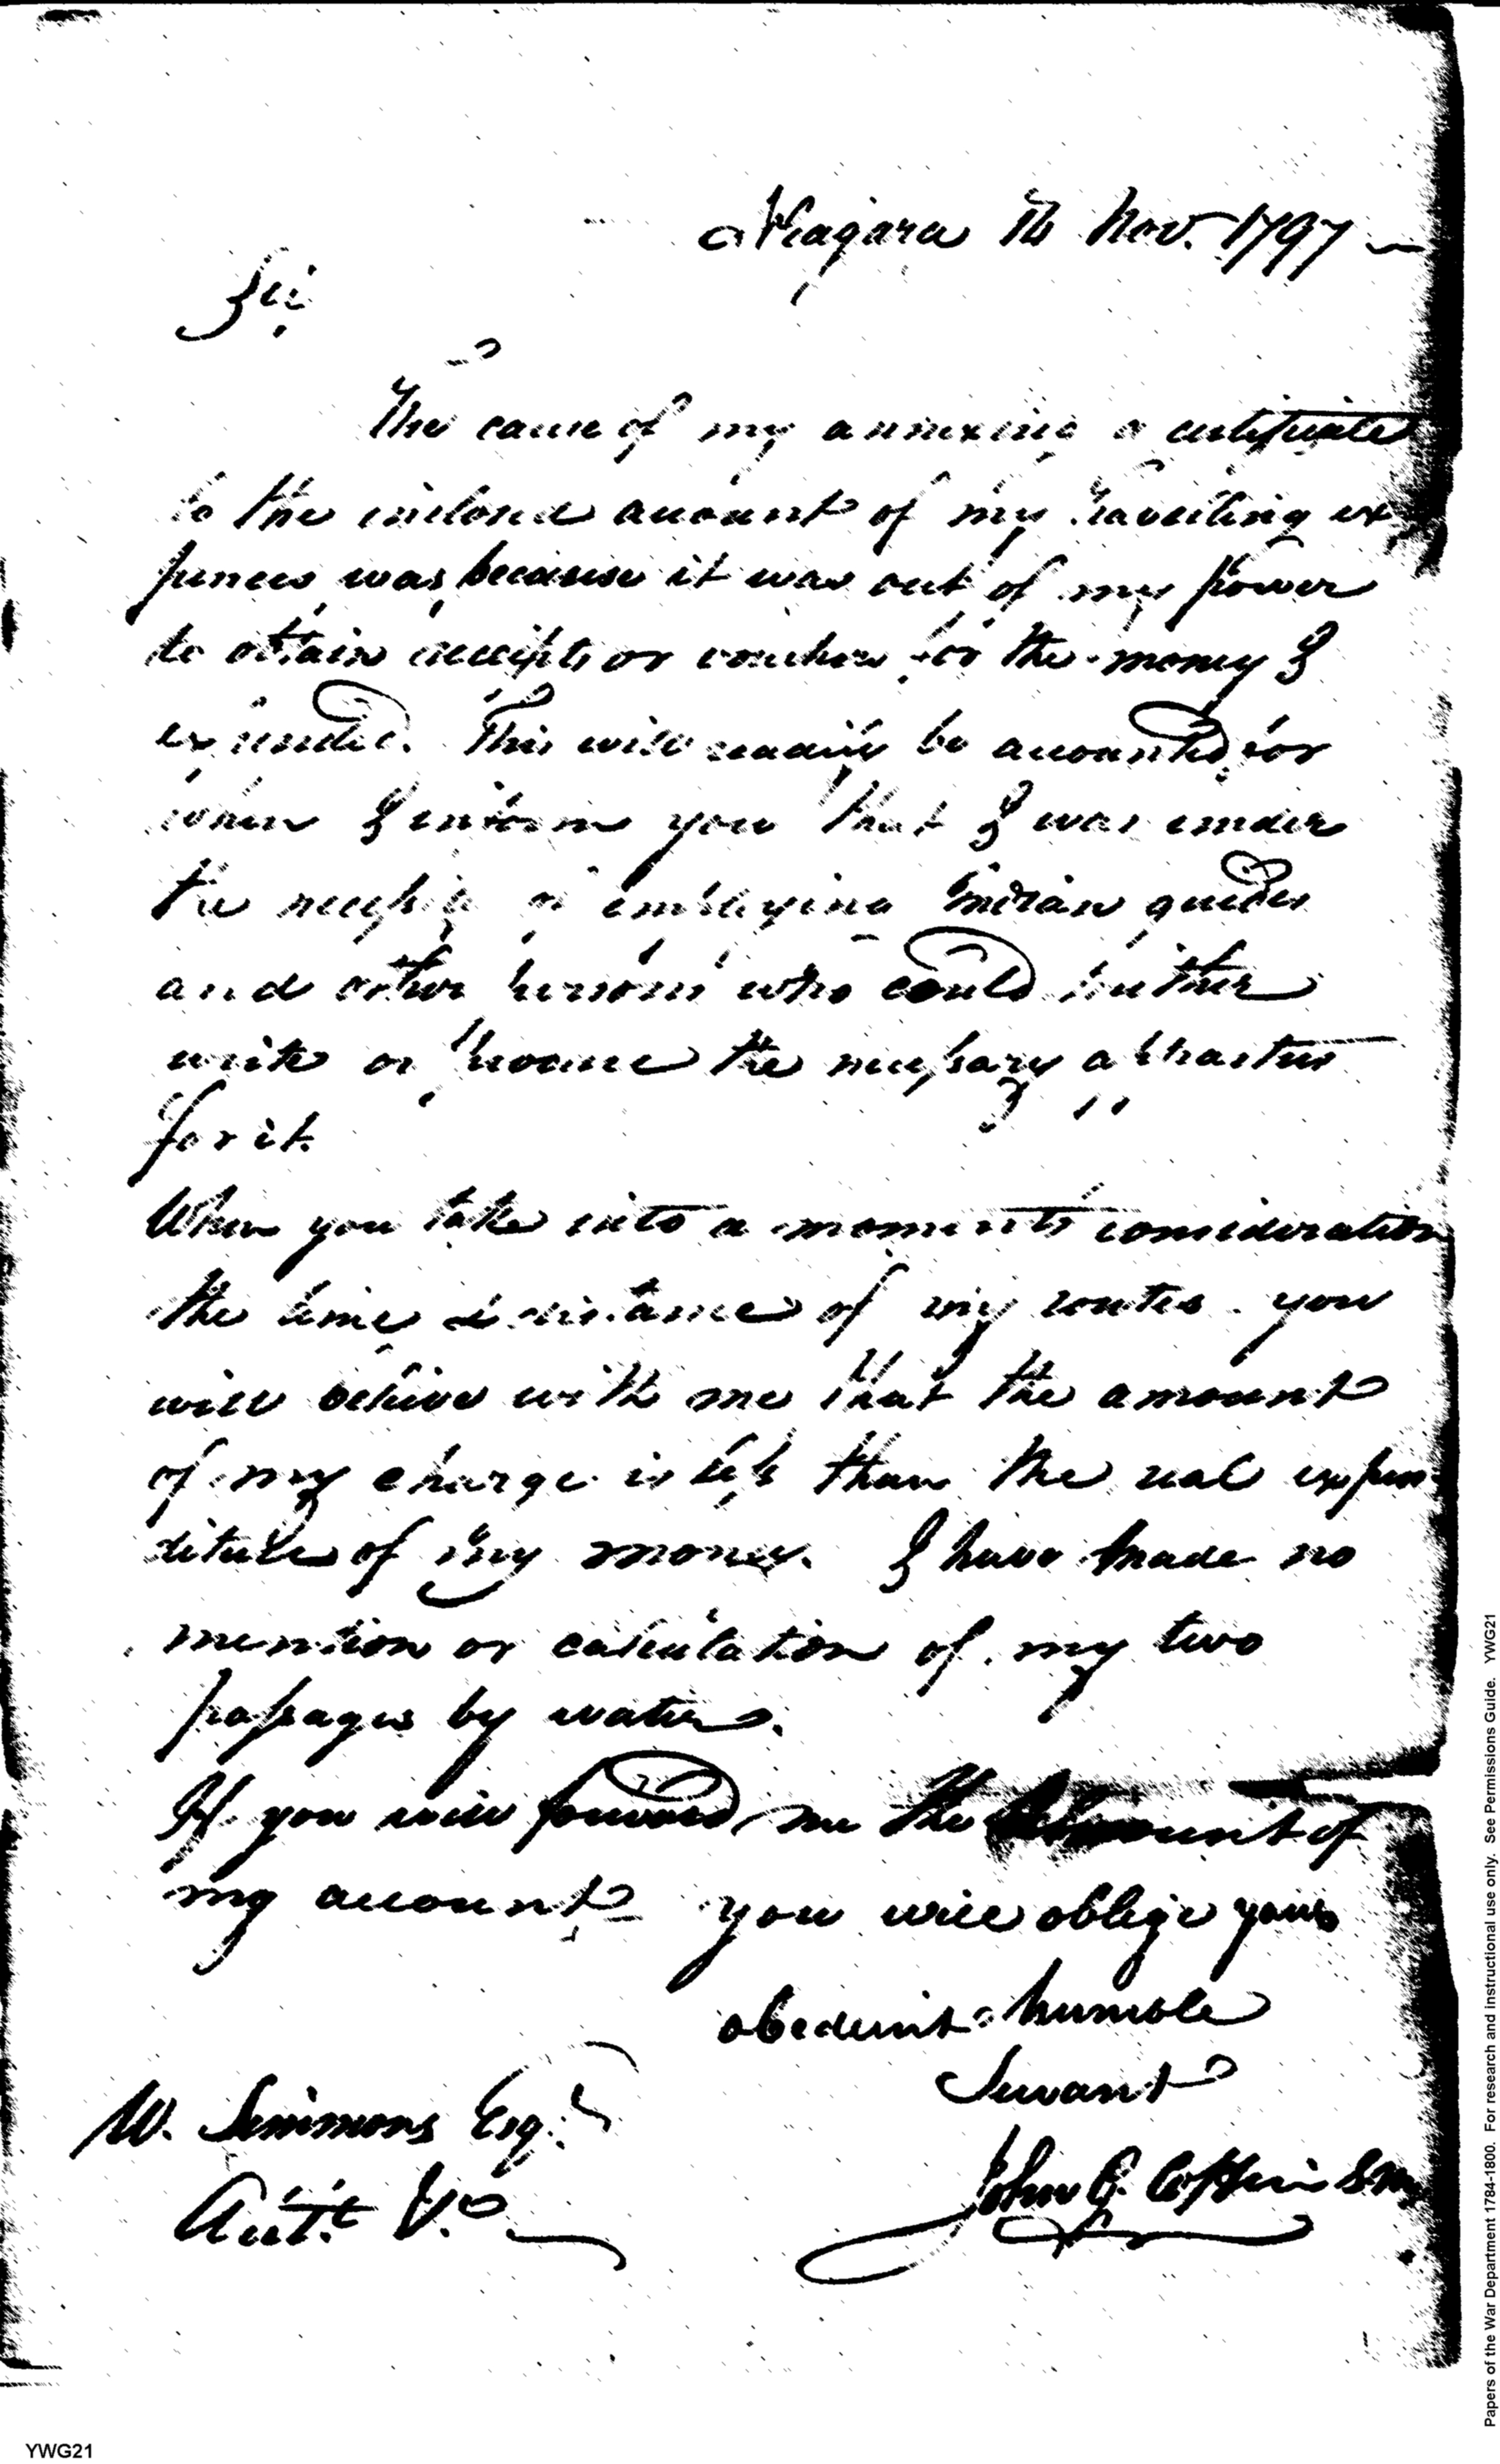 Niagara 14 Nov. 1797
Sir
The cause of my annexing a certificate
to the inclosed account of my travelling ex
pences was because it was out of my power
to obtain receipts or vouchers for the money I
expended. This will readily be accounted for
when I inform you that I was under
the necessity of employing Indian guides
and other persons who could neither
write or procure the necessary apparatus
for it.
When you take into a moments consideration
the time & distance of my routes you
will believe with me that the amount
of my charge is less than the real expen
diture of my money. I have made no
mention or calculation of my two
passages by water.
If you will forward me the amount of
my account you will oblige yours
obedient humble
Servant
W. Simmons Esqr.
Actt. &c.
John G. Coffin S.M.
Papers of the War Department 1784-1800. For research and instructional use only. See Permissions Guide. YWG21
YWG21